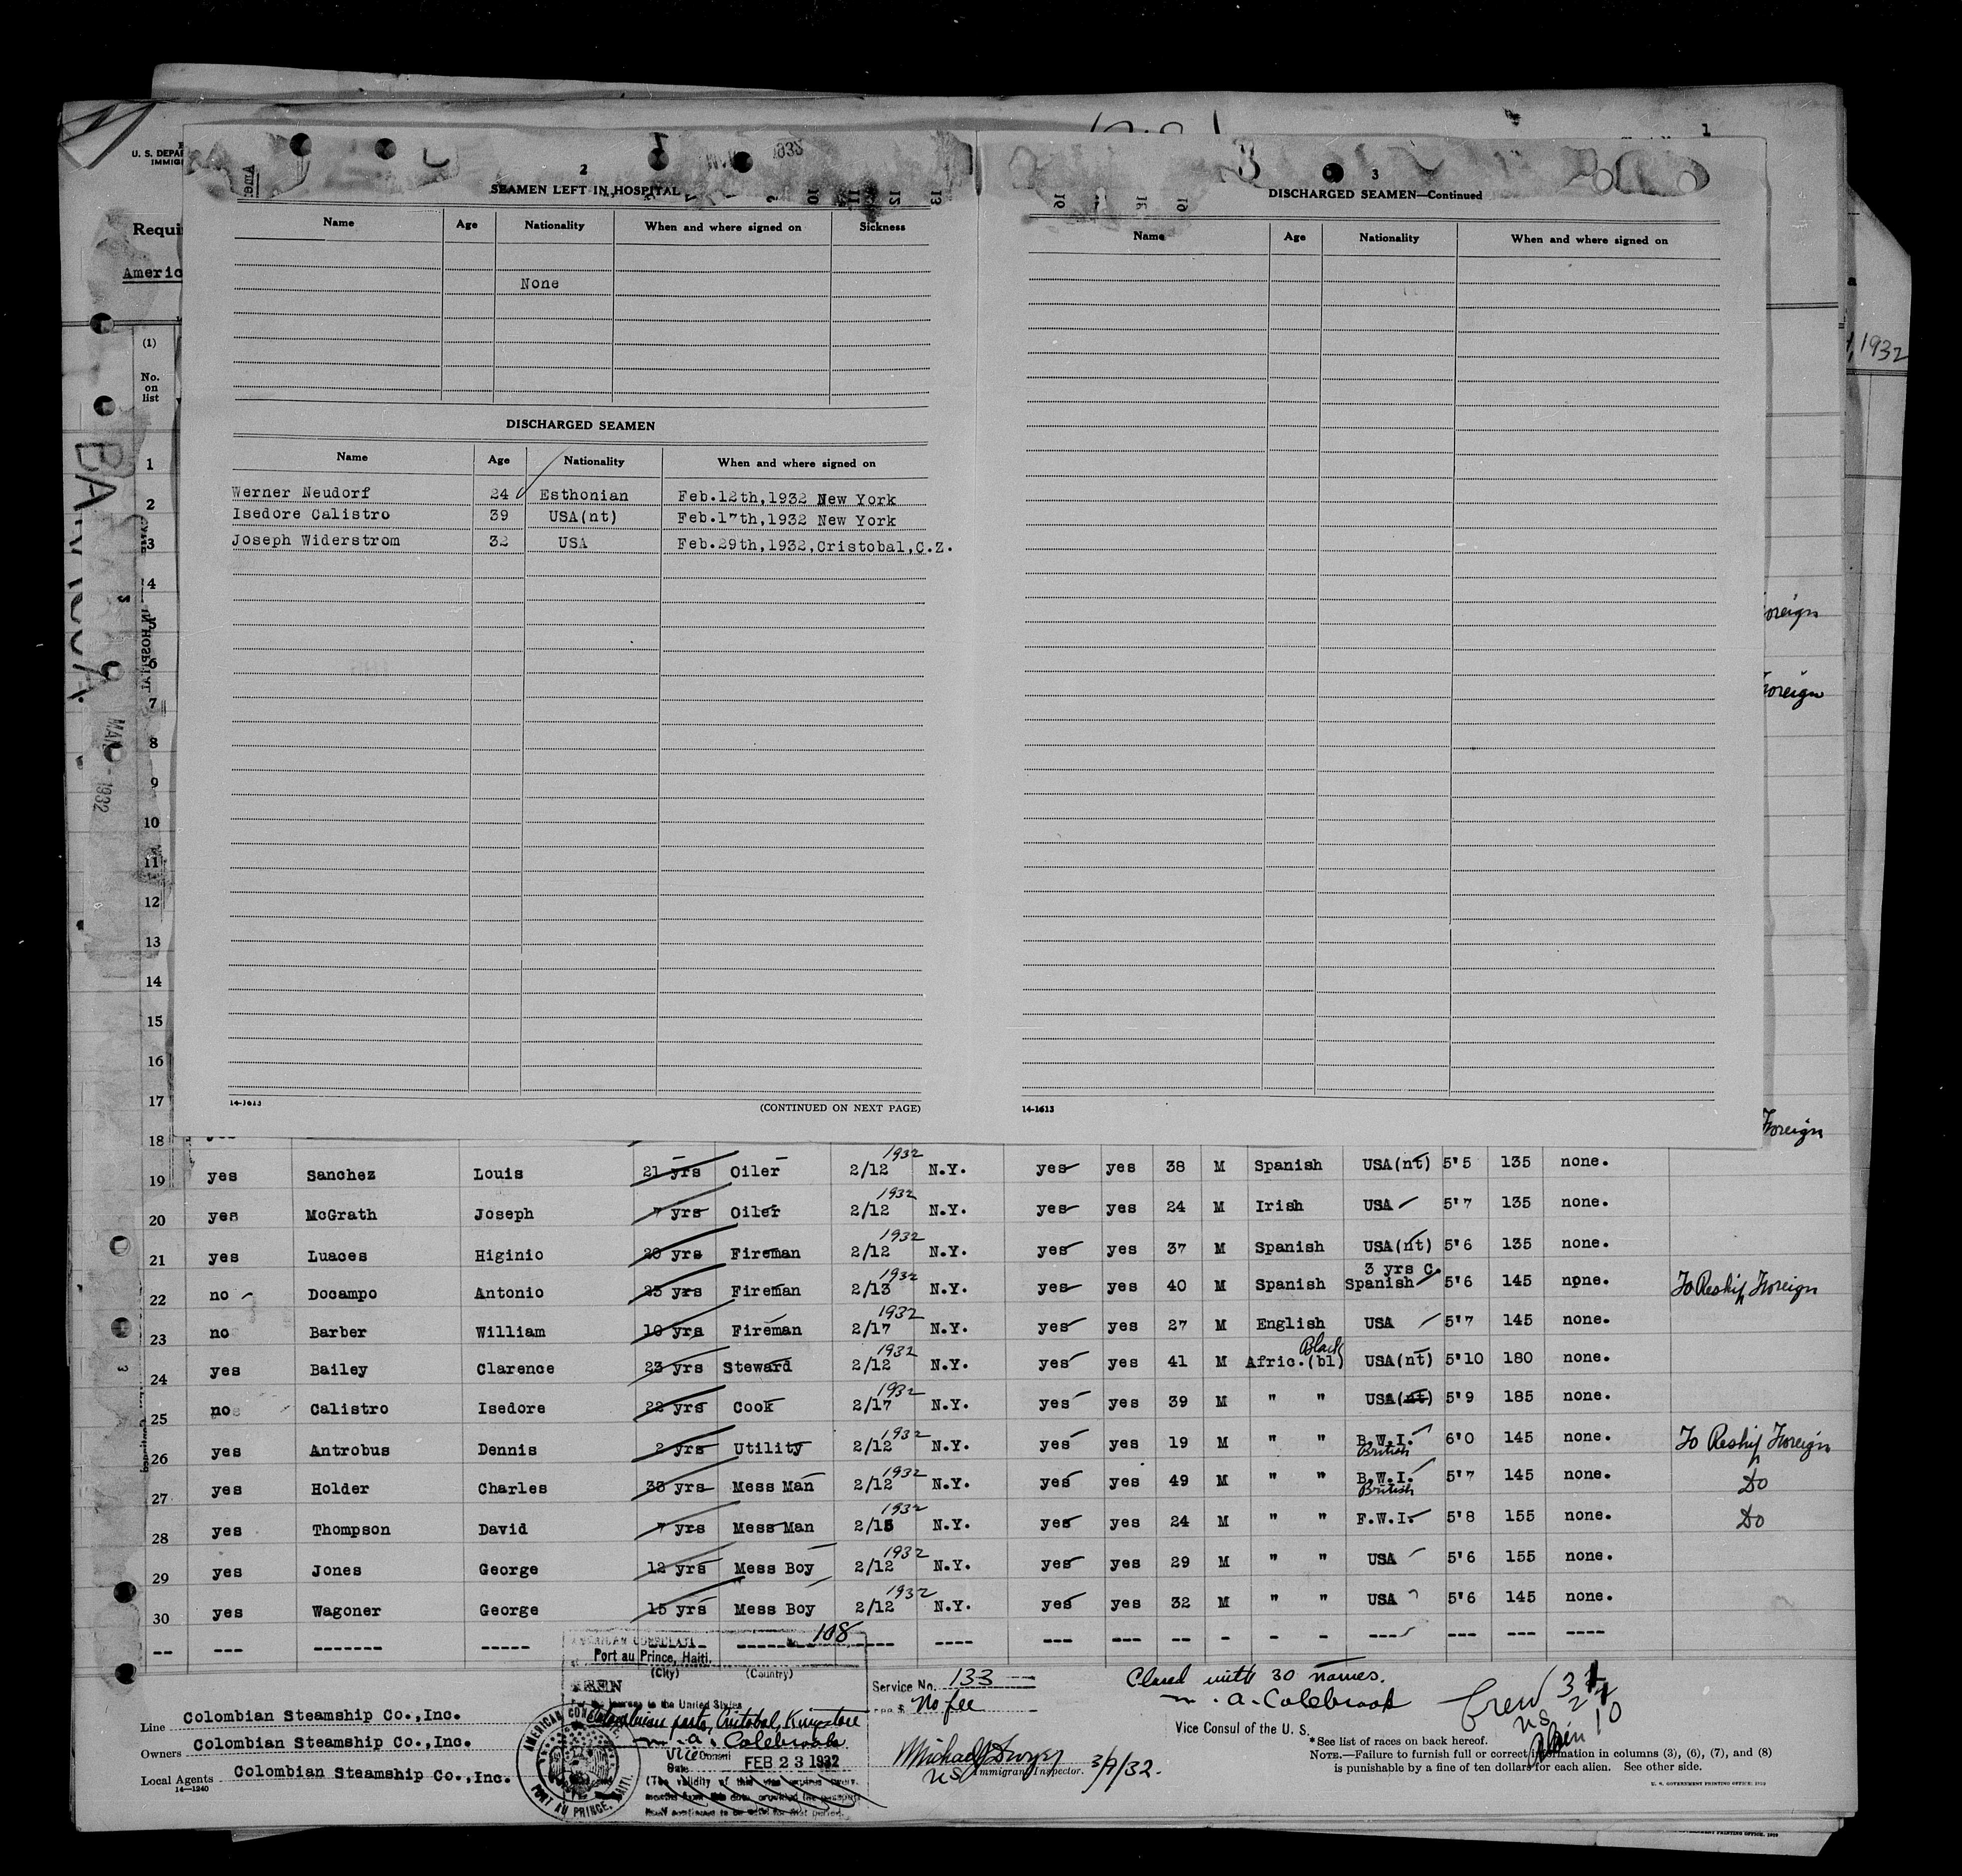 1
U. S. DEPA
IMMIG
Requi
Americ
1932
2
SEAMEN LEFT IN HOSPITAL
Name Age Nationality When and where signed on Sickness
None
DISCHARGED SEAMEN
Name Age Nationality When and where signed on
Werner Neudorf 24 Esthonian Feb.12th,1932 New York
Isedore Calistro 39 USA(nt) Feb.17th,1932 New York
Joseph Widerstrom 32 USA Feb.29th,1932,Cristobal,C.Z.
14-1613
(CONTINUED ON NEXT PAGE)
3
DISCHARGED SEAMEN—Continued
Name Age Nationality When and where signed on
14-1613
, 1932
(1)
No.
on
list
1
2
3
4
5
6
7
8
9
10
11
12
13
14
15
16
17
18
oreign
oreign
Foreign
MAR 1932
19 yes Sanchez Louis 21 yrs Oiler 2/12 1932 N.Y. yes yes 38 M Spanish USA(nt) 5'5 135 none.
20 yes McGrath Joseph 7 yrs Oiler 2/12 1932 N.Y. yes yes 24 M Irish USA 5'7 135 none.
21 yes Luaces Higinio 20 yrs Fireman 2/12 1932 N.Y. yes yes 37 M Spanish USA(nt) 5'6 135 none.
22 no Docampo Antonio 25 yrs Fireman 2/13 1932 N.Y. yes yes 40 M Spanish 3 yrs C. Spanish 5'6 145 none. To Reship Foreign
23 no Barber William 10 yrs Fireman 2/17 1932 N.Y. yes yes 27 M English USA 5'7 145 none.
24 yes Bailey Clarence 23 yrs Steward 2/12 1932 N.Y. yes yes 41 M Afric.(bl) Black USA(nt) 5'10 180 none.
25 no Calistro Isedore 22 yrs Cook 2/17 1932 N.Y. yes yes 39 M " " USA(nt) 5'9 185 none.
26 yes Antrobus Dennis 2 yrs Utility 2/12 1932 N.Y. yes yes 19 M " " B.W.I. British 6'0 145 none. To Reship Foreign
27 yes Holder Charles 35 yrs Mess Man 2/12 1932 N.Y. yes yes 49 M " " B.W.I. British 5'7 145 none. Do
28 yes Thompson David 7 yrs Mess Man 2/15 1932 N.Y. yes yes 24 M " " F.W.I. 5'8 155 none. Do
29 yes Jones George 12 yrs Mess Boy 2/12 1932 N.Y. yes yes 29 M " " USA 5'6 155 none.
30 yes Wagoner George 15 yrs Mess Boy 2/12 1932 N.Y. yes yes 32 M " " USA 5'6 145 none.
-- --- ------- ----- ---- --- --- -- - - - --- --- --- ----
AMERICAN CONSULATE No. 108
Port au Prince, Haiti.
(City) (Country)
SEEN
For the journey to the United States
Colombian ports, Cristobal, Kingston
M. A. Colebrook
Vice Consul
Date FEB 23 1932
AMERICAN CONSULATE
PORT AU PRINCE, HAITI.
Service No. 133
Fee $ No fee
Closed with 30 names.
M. A. Colebrook
Vice Consul of the U. S.
Crew 34
US 24
Alien 10
Line Colombian Steamship Co.,Inc.
Owners Colombian Steamship Co.,Inc.
Local Agents Colombian Steamship Co.,Inc.
14—1240
Michael J Dwyer
US Immigrant Inspector. 3/9/32.
*See list of races on back hereof.
NOTE.—Failure to furnish full or correct information in columns (3), (6), (7), and (8)
is punishable by a fine of ten dollars for each alien. See other side.
U. S. GOVERNMENT PRINTING OFFICE